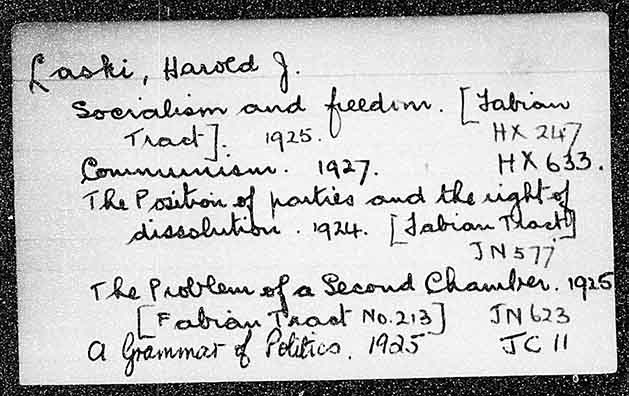 Laski, Harold J.
Socialism and freedom. [Fabian
Tract]. 1925. HX 247
Communism. 1927. HX 633.
The Position of parties and the right of
dissolution. 1924. [Fabian Tract]
JN 577
The Problem of a Second Chamber. 1925
[Fabian Tract No. 213] JN 623
A Grammar of Politics. 1925 JC 11